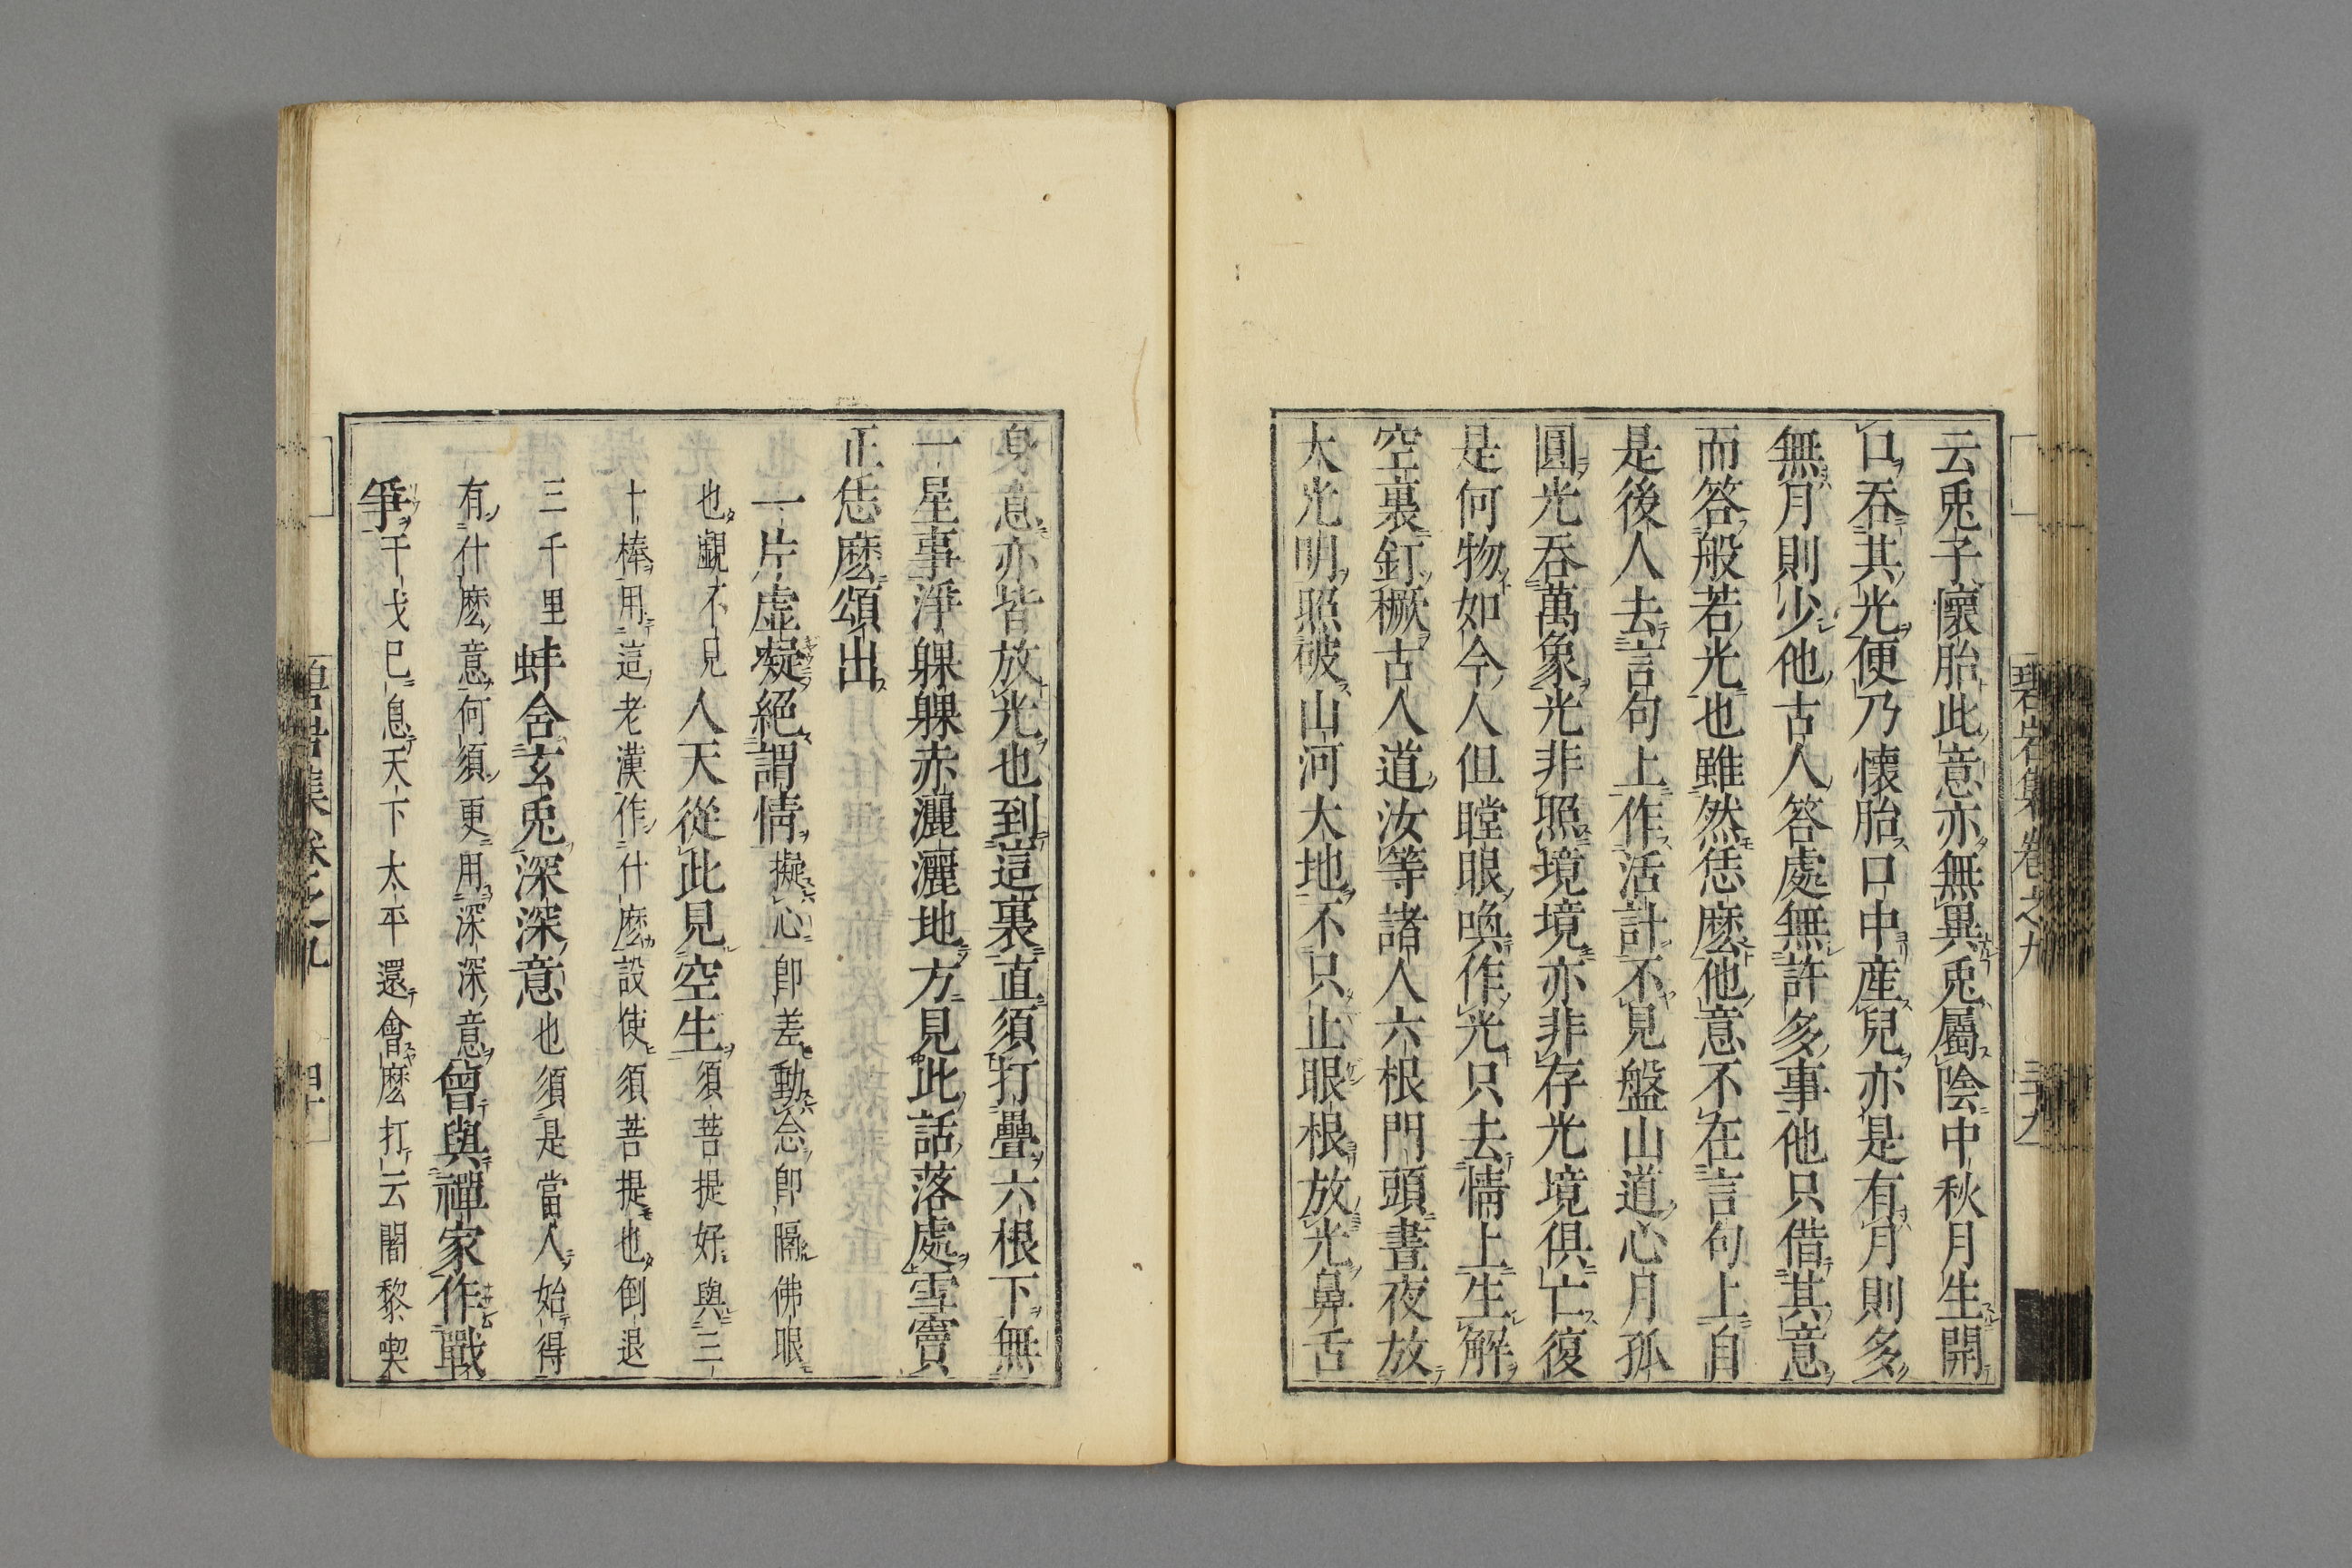 碧岩集卷之九
云兎子懷胎此意亦無異兎屬陰中秋月生開
口吞其光便乃懷胎口中産兒亦是有月則多
無月則少他古人答處無許多事他只借其意
而答般若光也雖然恁麽他意不在言句上自
是後人去言句上作活計不見盤山道心月孤
圓光吞萬象光非照境境亦非存光境俱亡復
是何物如今人但瞠眼喚作光只去情上生解
空裏釘橛古人道汝等諸人六根門頭晝夜放
大光明照破山河大地不只止眼根放光鼻舌
身意亦皆放光也到這裏直須打疊六根下無
一星事淨躶躶赤灑灑地方見此話落處雪竇
正恁麽頌出
一片虚凝絕謂情擬心即差動念即隔佛眼
也覷不見人天從此見空生須菩提好與三
十棒用這老漢作什麽設使須菩提也倒退
三千里蚌含玄兎深深意也須是當人始得
有什麽意何須更用深深意曾與禪家作戰
爭干戈已息天下太平還會麽打云闍黎喫
集卷之九